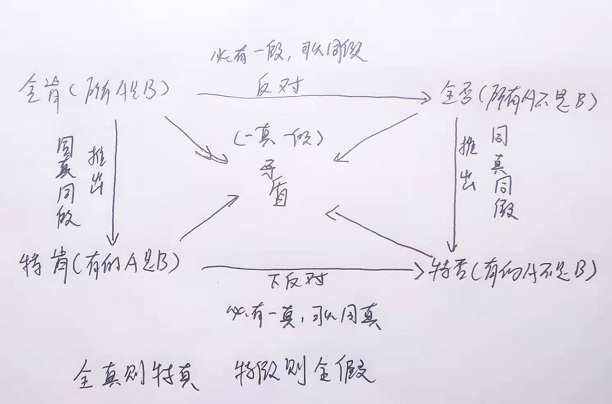 必有一假,可以同假
全肯(所有A是B)
反对
全否(所有A不是B)
(一真一假)
矛盾
同真同假
推出
推出
同真同假
特肯(有的A是B)
下反对
特否(有的A不是B)
必有一真,可以同真
全真则特真 特假则全假